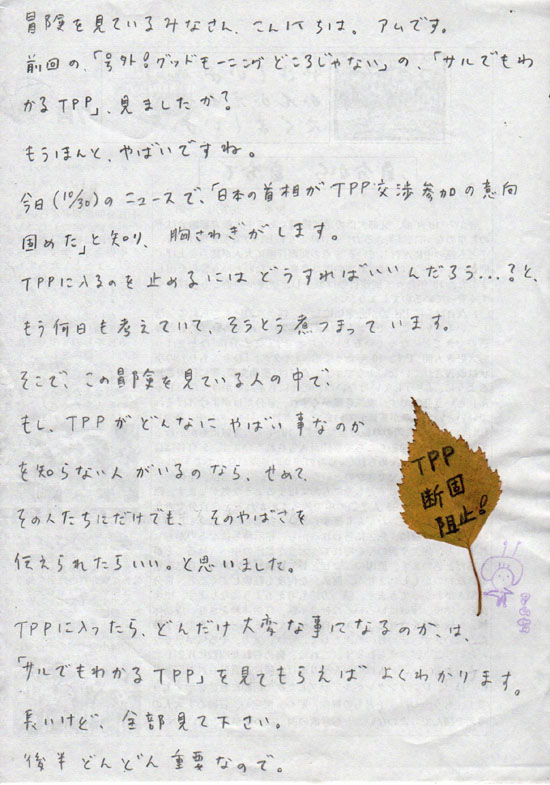 冒険を見ているみなさん、こんにちは。アムです。
前回の、「号外!グッドモーニングどころじゃない」の、「サルでもわ
かるTPP」、見ましたか?
もうほんと、やばいですね。
今日(10/30)のニュースで、「日本の首相がTPP交渉参加の意向
固めた」と知り、胸さわぎがします。
TPPに入るのを止めるにはどうすればいいんだろう…?と、
もう何日も考えていて、そうとう煮つまっています。
そこで、この冒険を見ている人の中で、
もし、TPPがどんなにやばい事なのか
を知らない人がいるのなら、せめて、
その人たちにだけでも、そのやばさを
伝えられたらいい。と思いました。
TPP
断固
阻止!
TPPに入ったら、どんだけ大変な事になるのか、は、
「サルでもわかるTPP」を見てもらえばよくわかります。
長いけど、全部見て下さい。
後半どんどん重要なので。